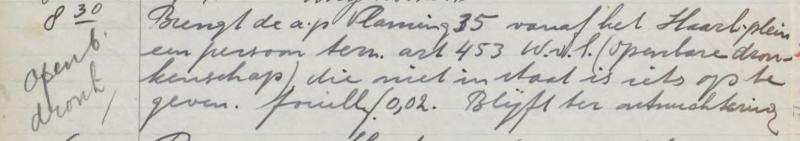 8 30 Brengt de a.p. Vlaming 35 vanaf het Haarl. plein
een persoon tern. art 453 W.v.S. (openbare dron-
openb. kenschap) die niet in staat is iets op te
dronk, geven. fouill. f 0,02. Blijft ter ontnuchtering